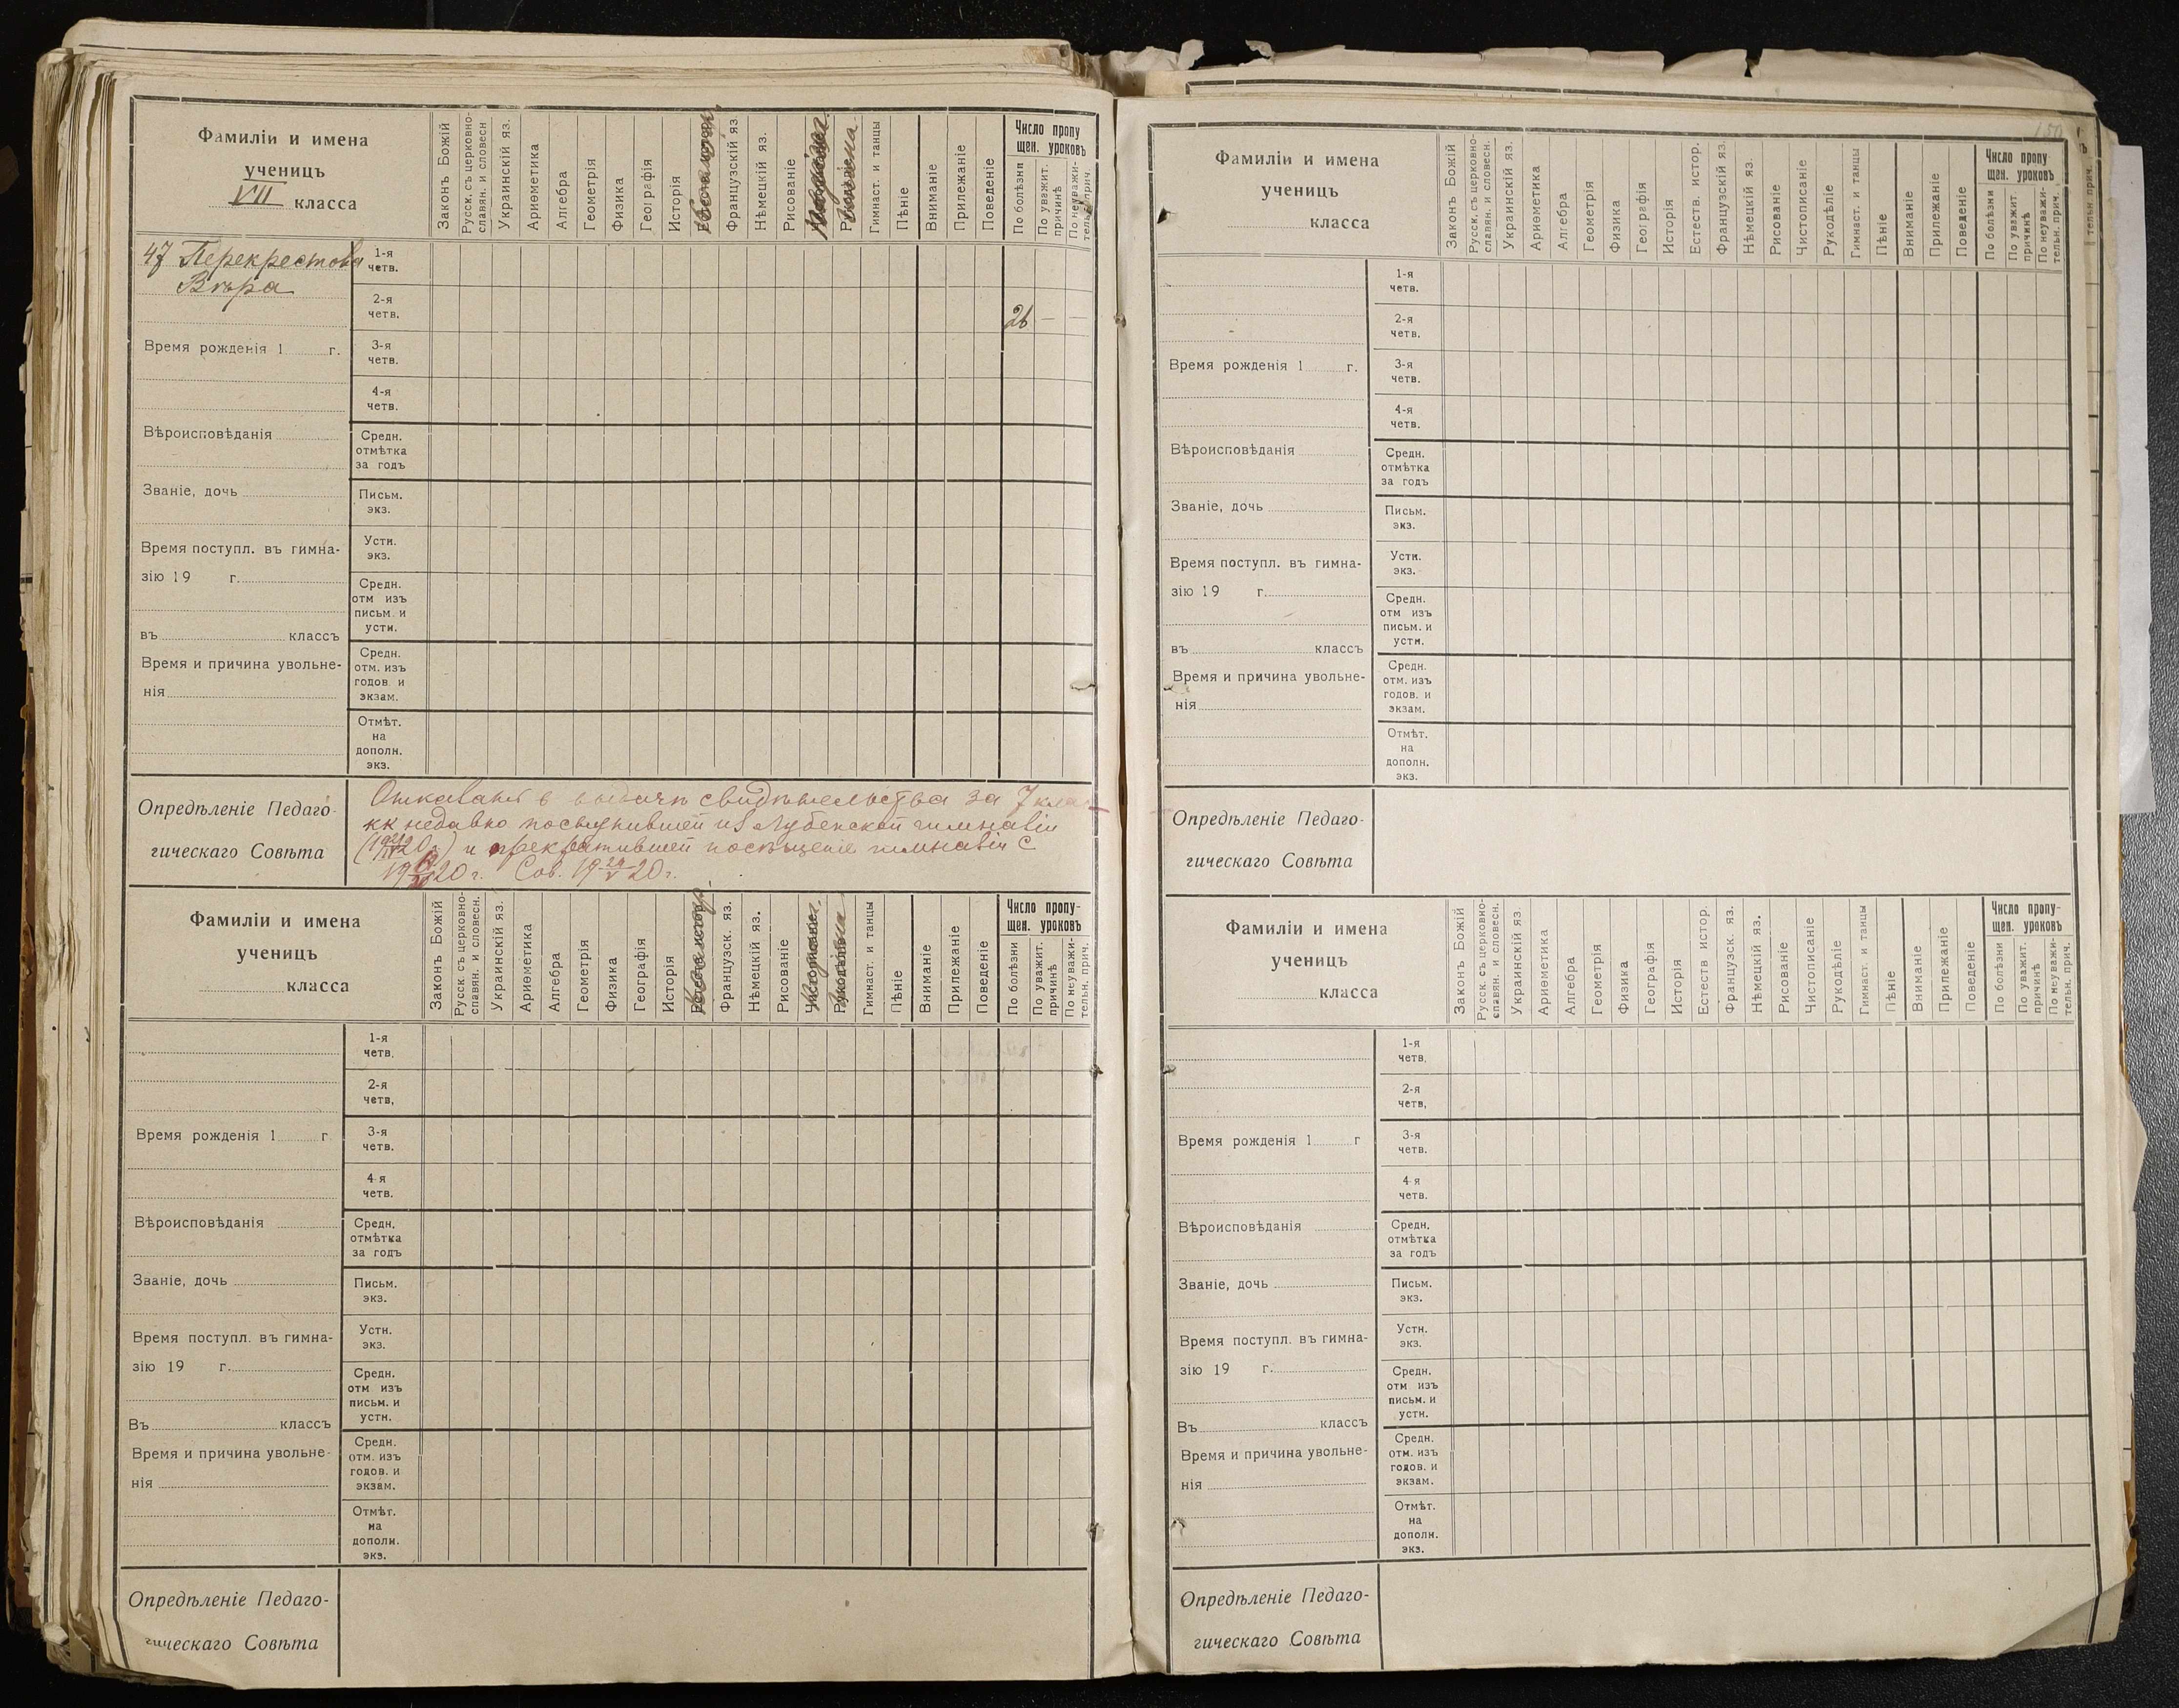 Фамиліи и имена
ученицъ
VII класса
Законъ Божій
Русск. съ церковно-
славян. и словесн
Украинскій яз.
Ариѳметика
Алгебра
Геометрія
Физика
Географія
Исторія
Французскій яз
Нѣмецкій яз.
Рисованіе
Гимнаст. и танцы
Пѣніе
Вниманіе
Прилежаніе
Поведеніе
Число пропу
щен. уроковъ
По болѣзни
По уважит.
причинѣ
По неуважи-
тельн. прич.
47 Перекрестова
Вѣра
Время рожденія 1 г.
Вѣроисповѣданія
Званіе, дочь
Время поступл. въ гимна-
зію 19 г.
въ классъ
Время и причина увольне-
нія
1-я
четв.
2-я
четв.
26 — —
3-я
четв.
4-я
четв.
Средн.
отмѣтка
за годъ
Письм.
экз.
Устн.
экз.
Средн.
отм изъ
письм. и
устн.
Средн.
отм. изъ
годов. и
экзам.
Отмѣт.
на
дополн.
экз.
Опредѣленіе Педаго-
гическаго Совѣта
Отказать в выдачѣ свидѣтельства за 7 кла-
недавно поступившей из Лубенской гимназіи
и прекратившей посѣщеніе гимназіи с
20 г. Сов. 19 29/V 20 г.
Фамиліи и имена
ученицъ
класса
Законъ Божій
Русск. съ церковно-
славян. и словесн.
Украинскій яз.
Ариѳметика
Алгебра
Геометрія
Физика
Географія
Исторія
Французск. яз.
Нѣмецкій яз.
Рисованіе
Гимнаст. и танцы
Пѣніе
Вниманіе
Прилежаніе
Поведеніе
Число пропу-
щен. уроковъ
По болѣзни
По уважит.
причинѣ
По неуважи-
тельн. прич.
Время рожденія 1 г
Вѣроисповѣданія
Званіе, дочь
Время поступл. въ гимна-
зію 19 г.
Въ классъ
Время и причина увольне-
нія
1-я
четв.
2-я
четв,
3-я
четв.
4-я
четв.
Средн.
отмѣтка
за годъ
Письм.
экз.
Устн.
экз.
Средн.
отм изъ
письм. и
устн.
Средн.
отм. изъ
годов. и
экзам.
Отмѣт.
на
дополн.
экз.
Опредѣленіе Педаго-
гическаго Совѣта
150
Фамиліи и имена
ученицъ
класса
Законъ Божій
Русск. съ церковно-
славян. и словесн.
Украинскій яз.
Ариѳметика
Алгебра
Геометрія
Физика
Географія
Исторія
Естеств. истор.
Французскій яз.
Нѣмецкій яз.
Рисованіе
Чистописаніе
Рукодѣліе
Гимнаст. и танцы
Пѣніе
Вниманіе
Прилежаніе
Поведеніе
Число пропу
щен. уроковъ
По болѣзни
По уважит.
причинѣ
По неуважи-
тельн. прич.
тельн. прич.
Время рожденія 1 г.
Вѣроисповѣданія
Званіе, дочь
Время поступл. въ гимна-
зію 19 г.
въ классъ
Время и причина увольне-
нія
1-я
четв.
2-я
четв.
3-я
четв.
4-я
четв.
Средн.
отмѣтка
за годъ
Письм.
экз.
Устн.
экз.
Средн.
отм изъ
письм. и
устн.
Средн.
отм. изъ
годов. и
экзам.
Отмѣт.
на
дополн.
экз.
Опредѣленіе Педаго-
гическаго Совѣта
Фамиліи и имена
ученицъ
класса
Законъ Божій
Русск. съ церковно-
славян. и словесн.
Украинскій яз.
Ариѳметика
Алгебра
Геометрія
Физика
Географія
Исторія
Естеств истор.
Французск. яз.
Нѣмецкій яз.
Рисованіе
Чистописаніе
Рукодѣліе
Гимнаст. и танцы
Пѣніе
Вниманіе
Прилежаніе
Поведеніе
Число пропу-
щен. уроковъ
По болѣзни
По уважит.
причинѣ
По неуважи-
тельн. прич.
Время рожденія 1 г
Вѣроисповѣданія
Званіе, дочь
Время поступл. въ гимна-
зію 19 г.
Въ классъ
Время и причина увольне-
нія
1-я
четв,
2-я
четв,
3-я
четв.
4-я
четв.
Средн.
отмѣтка
за годъ
Письм.
экз.
Устн.
экз.
Средн.
отм изъ
письм. и
устн.
Средн.
отм. изъ
годов. и
экзам.
Отмѣт.
на
дополн.
экз.
Опредѣленіе Педаго-
гическаго Совѣта